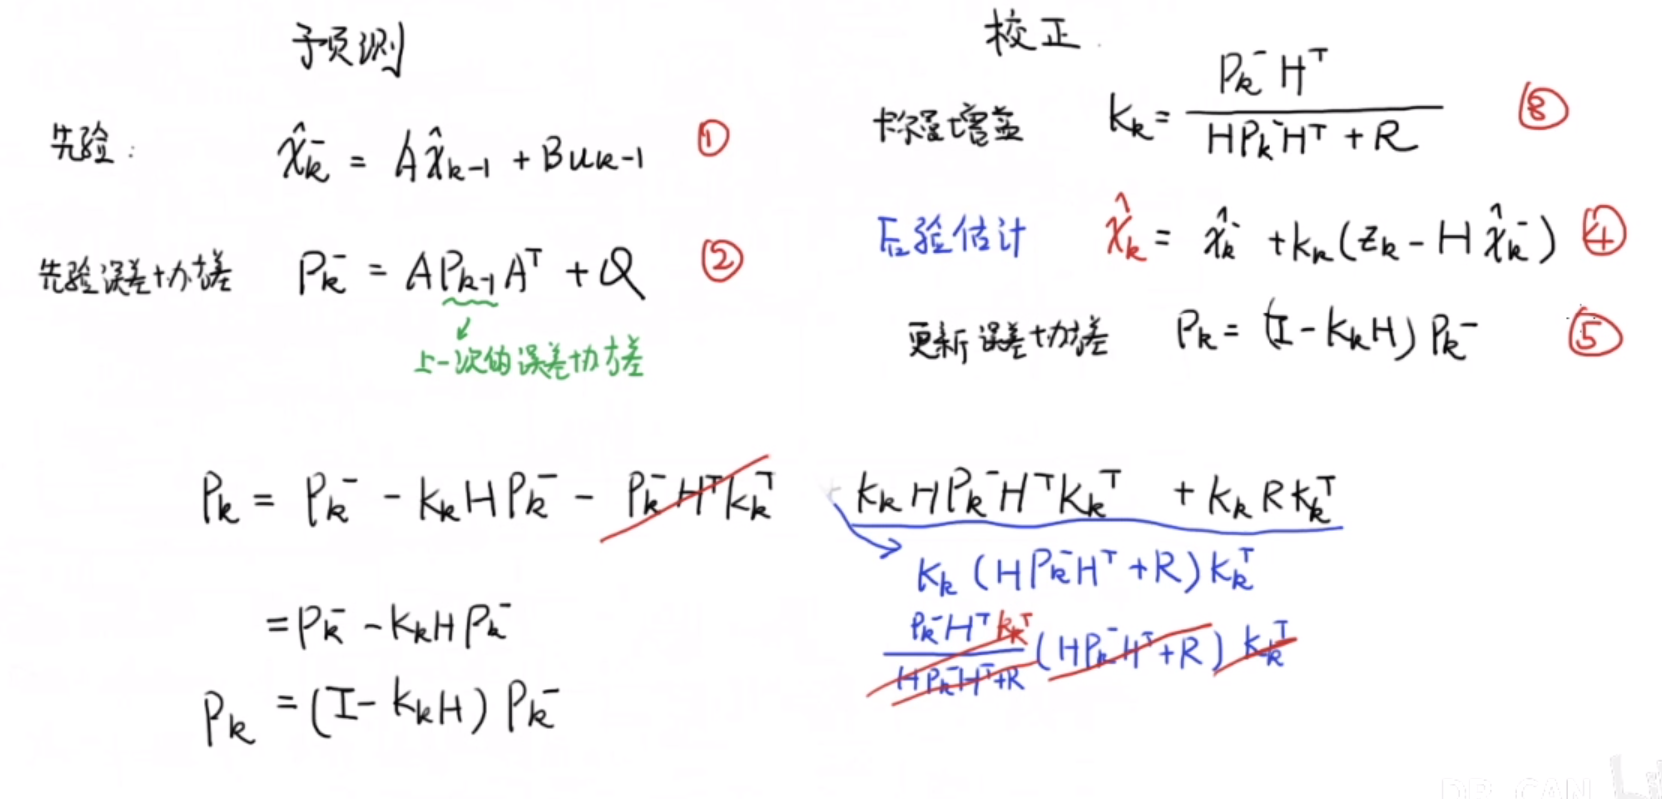 预测
先验: x̂ₖ⁻ = A x̂ₖ₋₁ + B uₖ₋₁ ①
先验误差协方差 Pₖ⁻ = A Pₖ₋₁ Aᵀ + Q ②
上一次的误差协方差
校正
卡尔曼增益 Kₖ = Pₖ⁻Hᵀ / (HPₖ⁻Hᵀ + R) ③
后验估计 x̂ₖ = x̂ₖ⁻ + Kₖ(zₖ - H x̂ₖ⁻) ④
更新误差协方差 Pₖ = (I - KₖH) Pₖ⁻ ⑤
Pₖ = Pₖ⁻ - KₖHPₖ⁻ - Pₖ⁻HᵀKₖᵀ + KₖHPₖ⁻HᵀKₖᵀ + KₖRKₖᵀ
Kₖ (HPₖ⁻Hᵀ + R) Kₖᵀ
Pₖ⁻Hᵀ Kₖᵀ / (HPₖ⁻Hᵀ+R) (HPₖ⁻Hᵀ+R) Kₖᵀ
= Pₖ⁻ - KₖHPₖ⁻
Pₖ = (I - KₖH) Pₖ⁻
DR_CAN